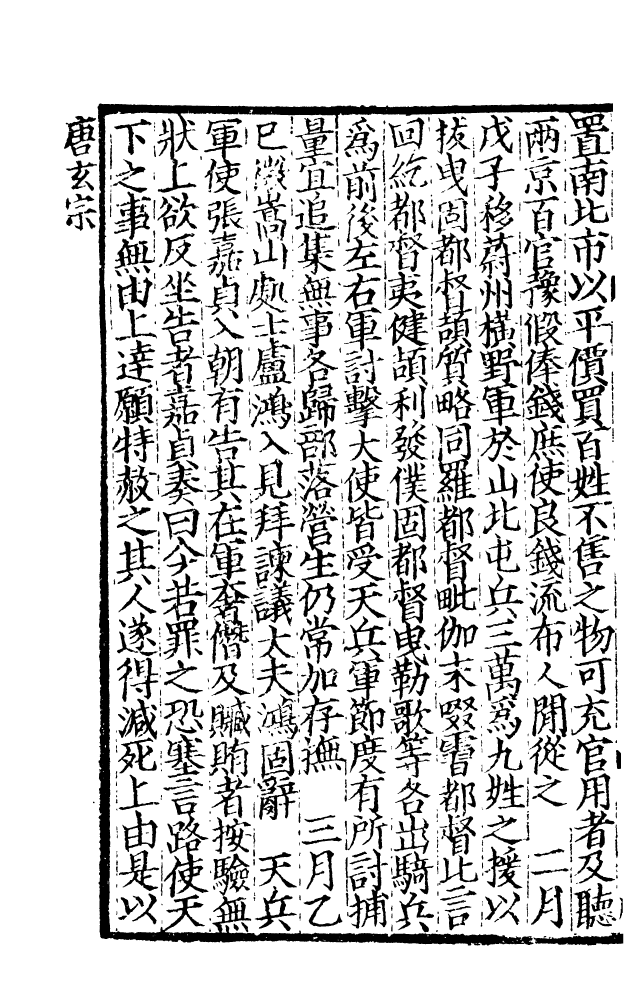 置南北市以平價買百姓不售之物可充官用者及聽
兩京百官豫假俸錢庶使良錢流布人間從之　二月
戊子移蔚州橫野軍於山北屯兵三萬爲九姓之援以
拔曳固都督頡質略同羅都督毗伽末啜霫都督比言
回紇都督夷健頡利發僕固都督曳勒歌等各出騎兵
爲前後左右軍討擊大使皆受天兵軍節度有所討捕
量宜追集無事各歸部落營生仍常加存撫　三月乙
巳徵嵩山處士盧鴻入見拜諫議大夫鴻固辭　天兵
軍使張嘉貞入朝有告其在軍奢僭及贓賄者按驗無
狀上欲反坐告者嘉貞奏曰今若罪之恐塞言路使天
下之事無由上達願特赦之其人遂得減死上由是以
唐玄宗